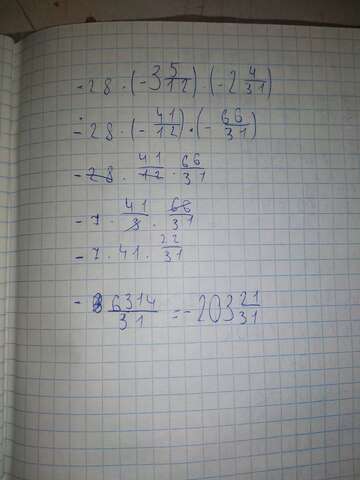 -28 · (-3 5/12) · (-2 4/31)
-28 · (-41/12) · (-66/31)
-28 · 41/12 · 66/31
-7 · 41/3 · 66/31
-7 · 41 · 22/31
-6314/31 = -203 21/31